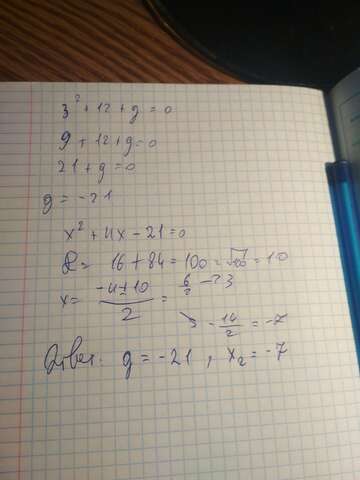 3² + 12 + g = 0
9 + 12 + g = 0
21 + g = 0
g = -21
x² + 4x - 21 = 0
D = 16 + 84 = 100 = √100 = 10
x = (-4 ± 10)/2 = 6/2 → 3
→ -14/2 = -7
Ответ: g = -21, x₂ = -7